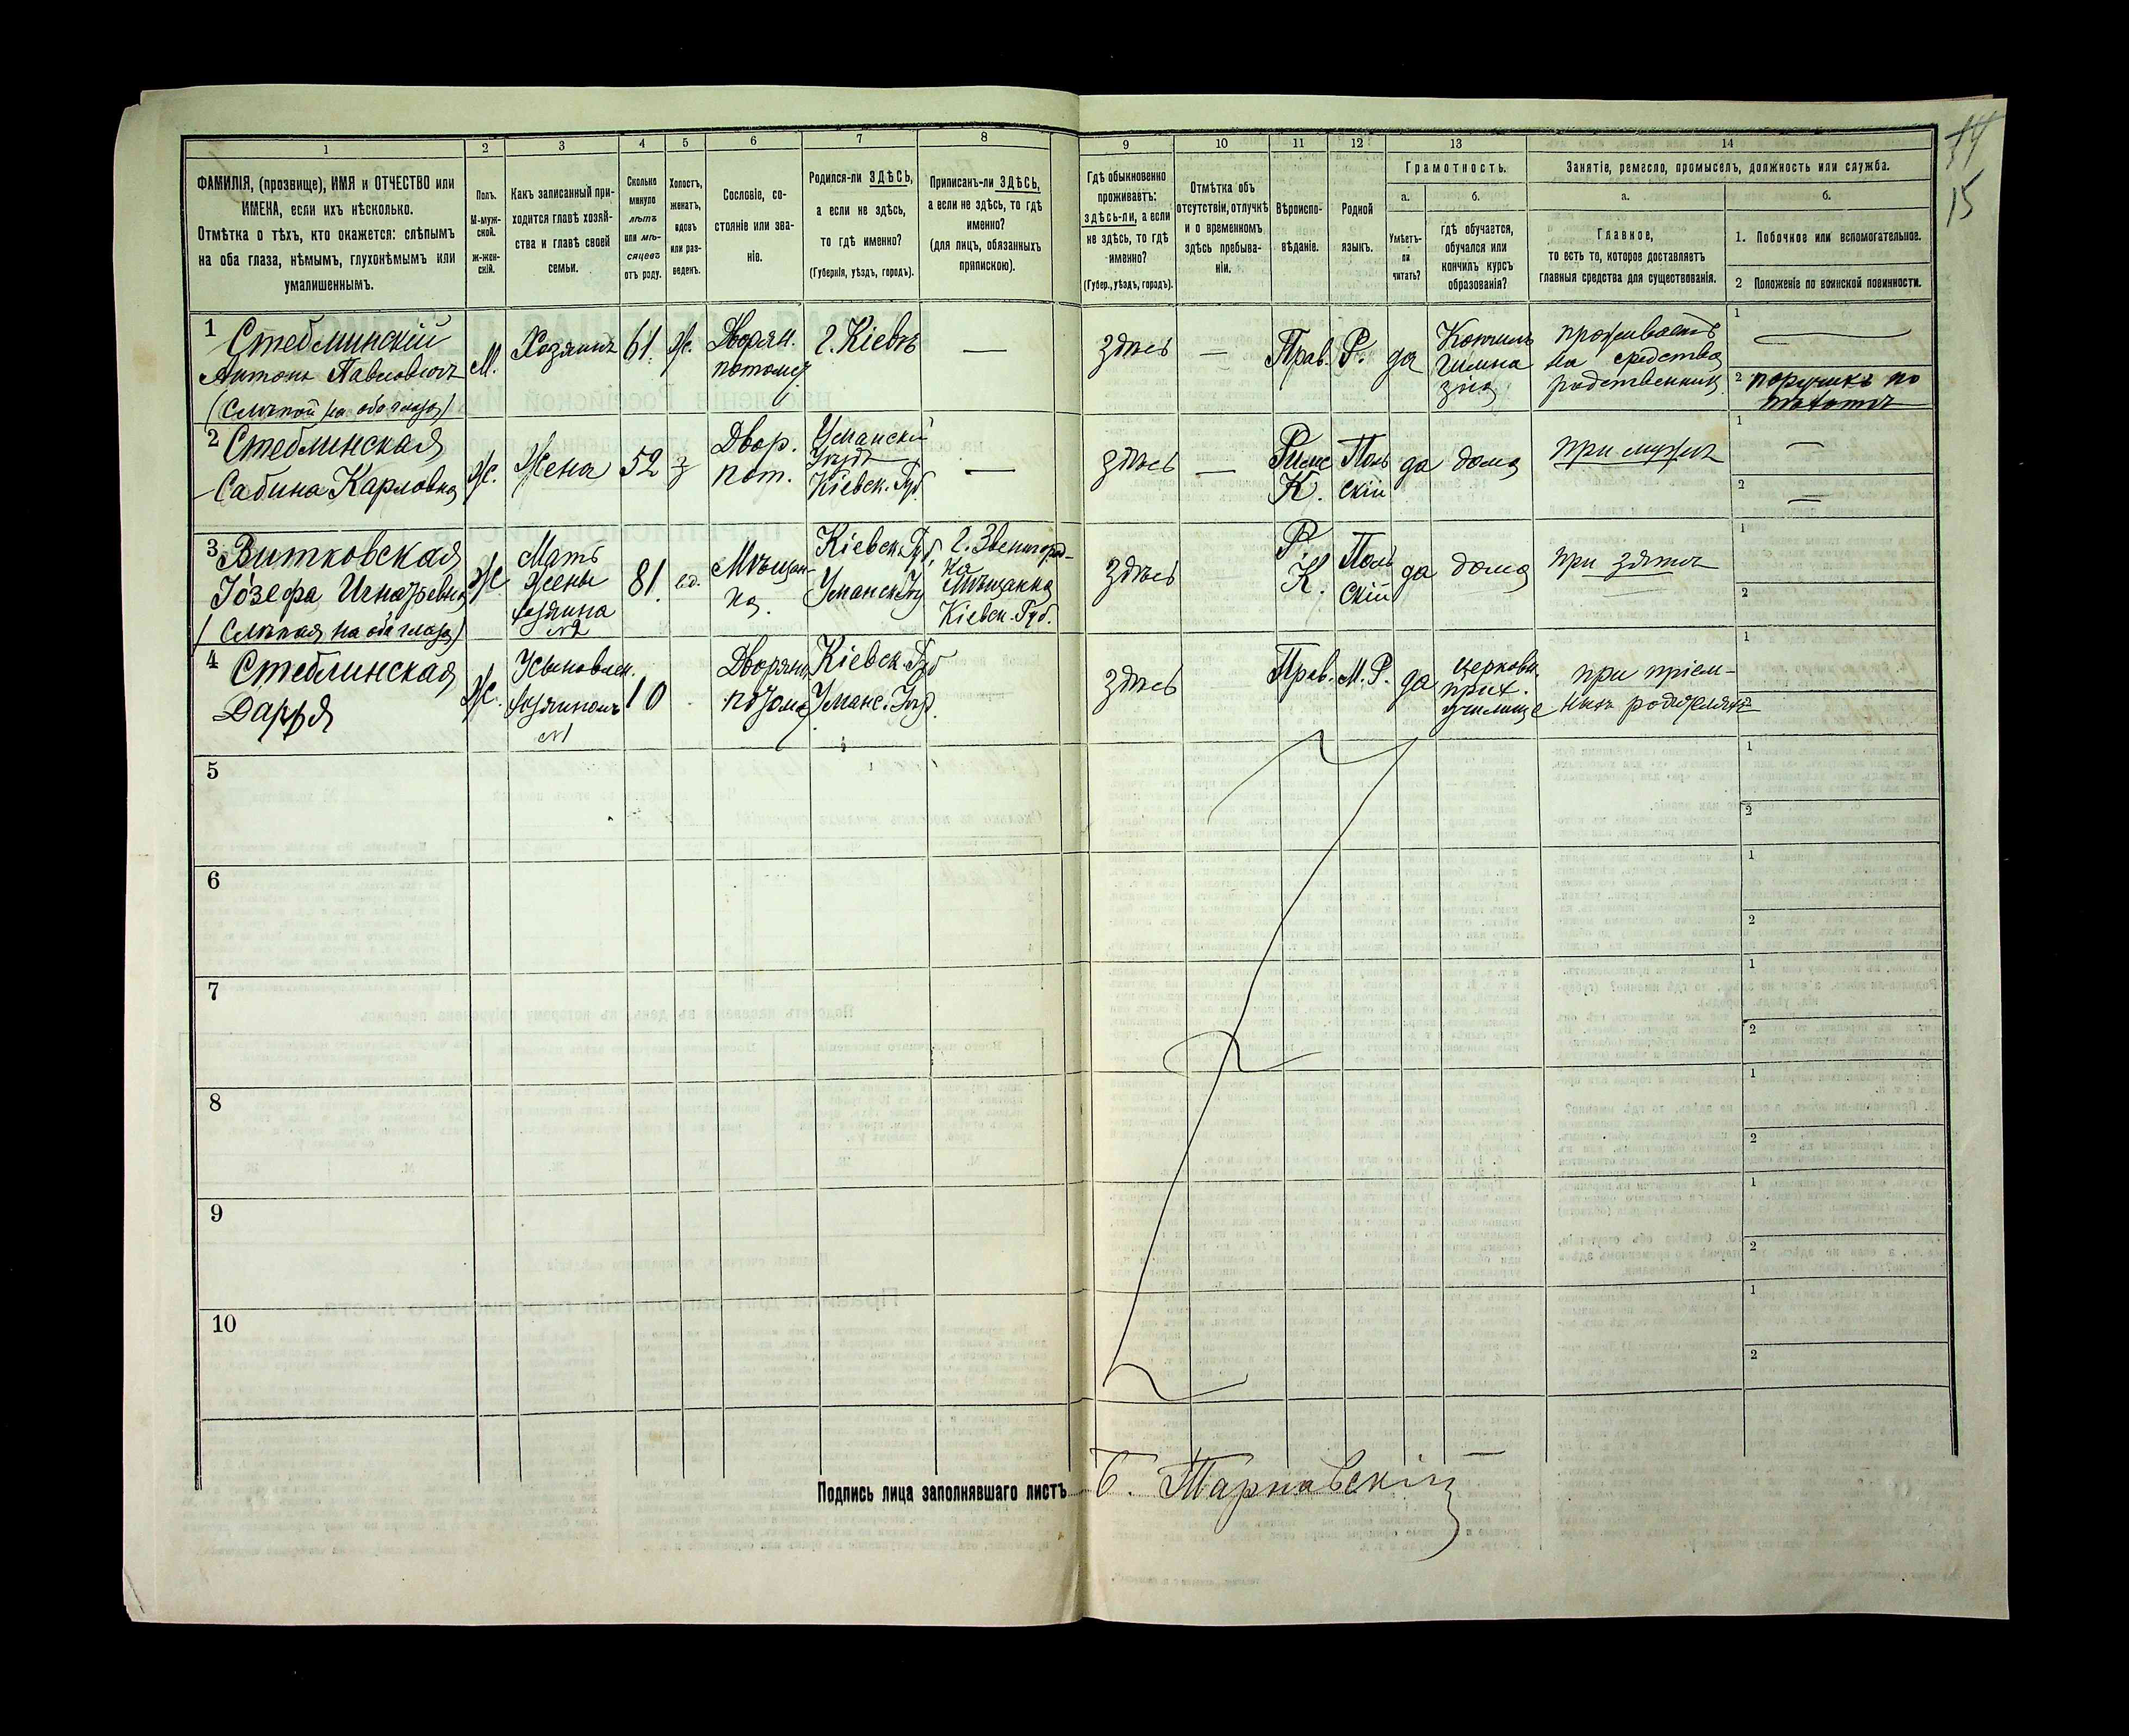 14
15
1
2
3
4
5
6
7
8
9
10
11
12
13
14
ФАМИЛІЯ, (прозвище), ИМЯ и ОТЧЕСТВО или
ИМЕНА, если ихъ нѣсколько.
Отмѣтка о тѣхъ, кто окажется: слѣпымъ
на оба глаза, нѣмымъ, глухонѣмымъ или
умалишеннымъ.
Полъ.
М-муж-
ской.
ж-жен-
скій.
Какъ записанный при-
ходится главѣ хозяй-
ства и главѣ своей
семьи.
Сколько
минуло
лѣтъ
или мѣ-
сяцевъ
отъ роду.
Холостъ,
женатъ,
вдовъ
или раз-
веденъ.
Сословіе, со-
стояніе или зва-
ніе.
Родился-ли ЗДѢСЬ,
а если не здѣсь,
то гдѣ именно?
(Губернія, уѣздъ, городъ).
Приписанъ-ли ЗДѢСЬ,
а если не здѣсь, то гдѣ
именно?
(для лицъ, обязанныхъ
припискою).
Гдѣ обыкновенно
проживаетъ:
здѣсь-ли, а если
не здѣсь, то гдѣ
именно?
(Губер., уѣздъ, городъ).
Отмѣтка объ
отсутствіи, отлучкѣ
и о временномъ
здѣсь пребыва-
ніи.
Вѣроиспо-
вѣданіе.
Родной
языкъ.
Грамотность.
а.
Умѣетъ-
ли
читать?
б.
гдѣ обучается,
обучался или
кончилъ курсъ
образованія?
Занятіе, ремесло, промыселъ, должность или служба.
а.
Главное,
то есть то, которое доставляетъ
главныя средства для существованія.
б.
1. Побочное или вспомогательное.
2 Положеніе по воинской повинности.
1
Стеблинскій
Антонъ Павловичъ
(Слѣпой на оба глаза)
М.
Хозяинъ
61.
Ж.
Дворян.
потом.
г. Кіевъ
—
здѣсь
—
Прав.
Р.
да
Кончилъ
гимна
зію
проживаетъ
на средства
родственник.
1 —
2 поручикъ по
2
Стеблинская
Сабина Карловна
Ж.
Жена
52
з
Двор.
пот.
Уманскій
Уѣздъ
Кіевск. Губ.
—
здѣсь
—
Римс
К.
Поль
скій
да
дома
при мужѣ
1 —
2 —
3
Витковская
Іозефа Игнатьевна
(Слѣпая на оба глаза)
Ж
Мать
жены
хозяина
№2
81.
вд.
Мѣщан-
ка.
Кіевск. Губ.
Уманск. Уѣз
г. Звенигород-
ка
Мѣщанка
Кіевск. Губ.
здѣсь
Р.
К.
Поль
скій
да
дома
при зятѣ
1
2
4
Стеблинская
Дарья
Ж.
Усыновлен.
хозяиномъ
№1
10
Дворян.
потом.
Кіевск. Губ
Уманс. Уѣз.
здѣсь
Прав.
М. Р.
да
церковн.
прих.
училище
при пріем-
ныхъ родителяхъ
1
2
5
1
2
6
1
2
7
1
2
8
1
2
9
1
2
10
1
2
Подпись лица заполнявшаго листъ Б. Тарнавскій